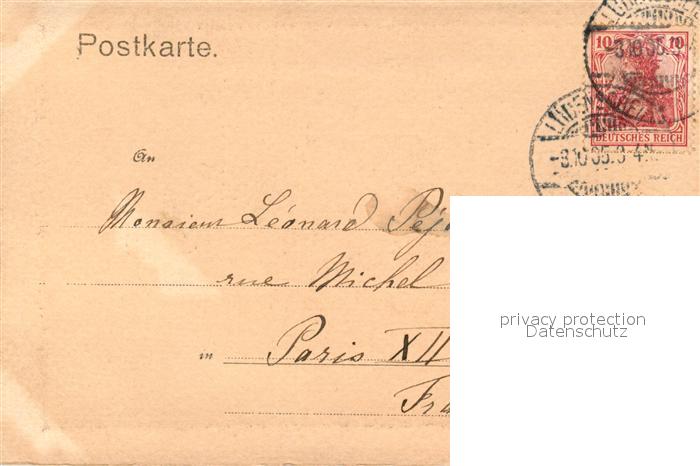 Postkarte.
10 10
DEUTSCHES REICH
LÜDENSCHEID
-3.10 05.3-4N.
An
Monsieur Léonard Péj
rue Michel
in Paris XII
Fra
privacy protection
Datenschutz